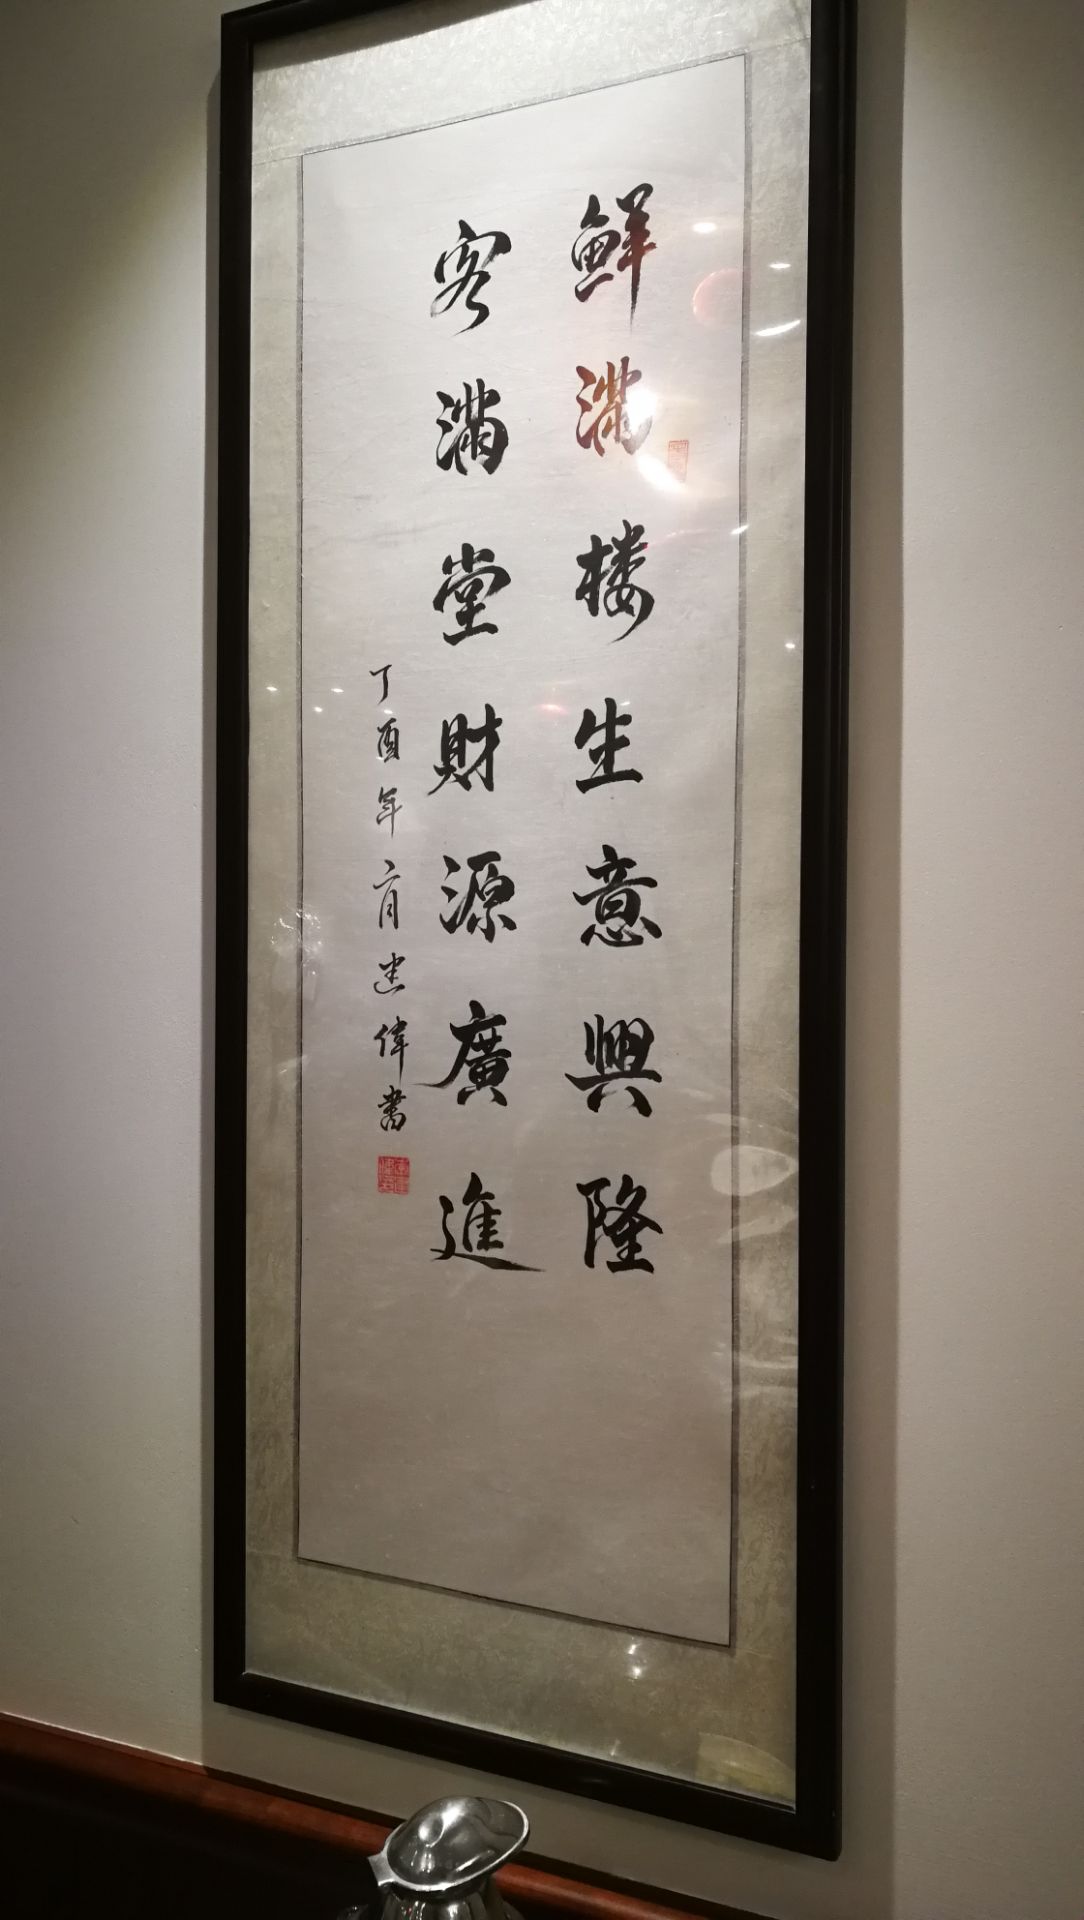 鮮滿楼生意興隆
客滿堂財源廣進
丁酉年六月建偉書